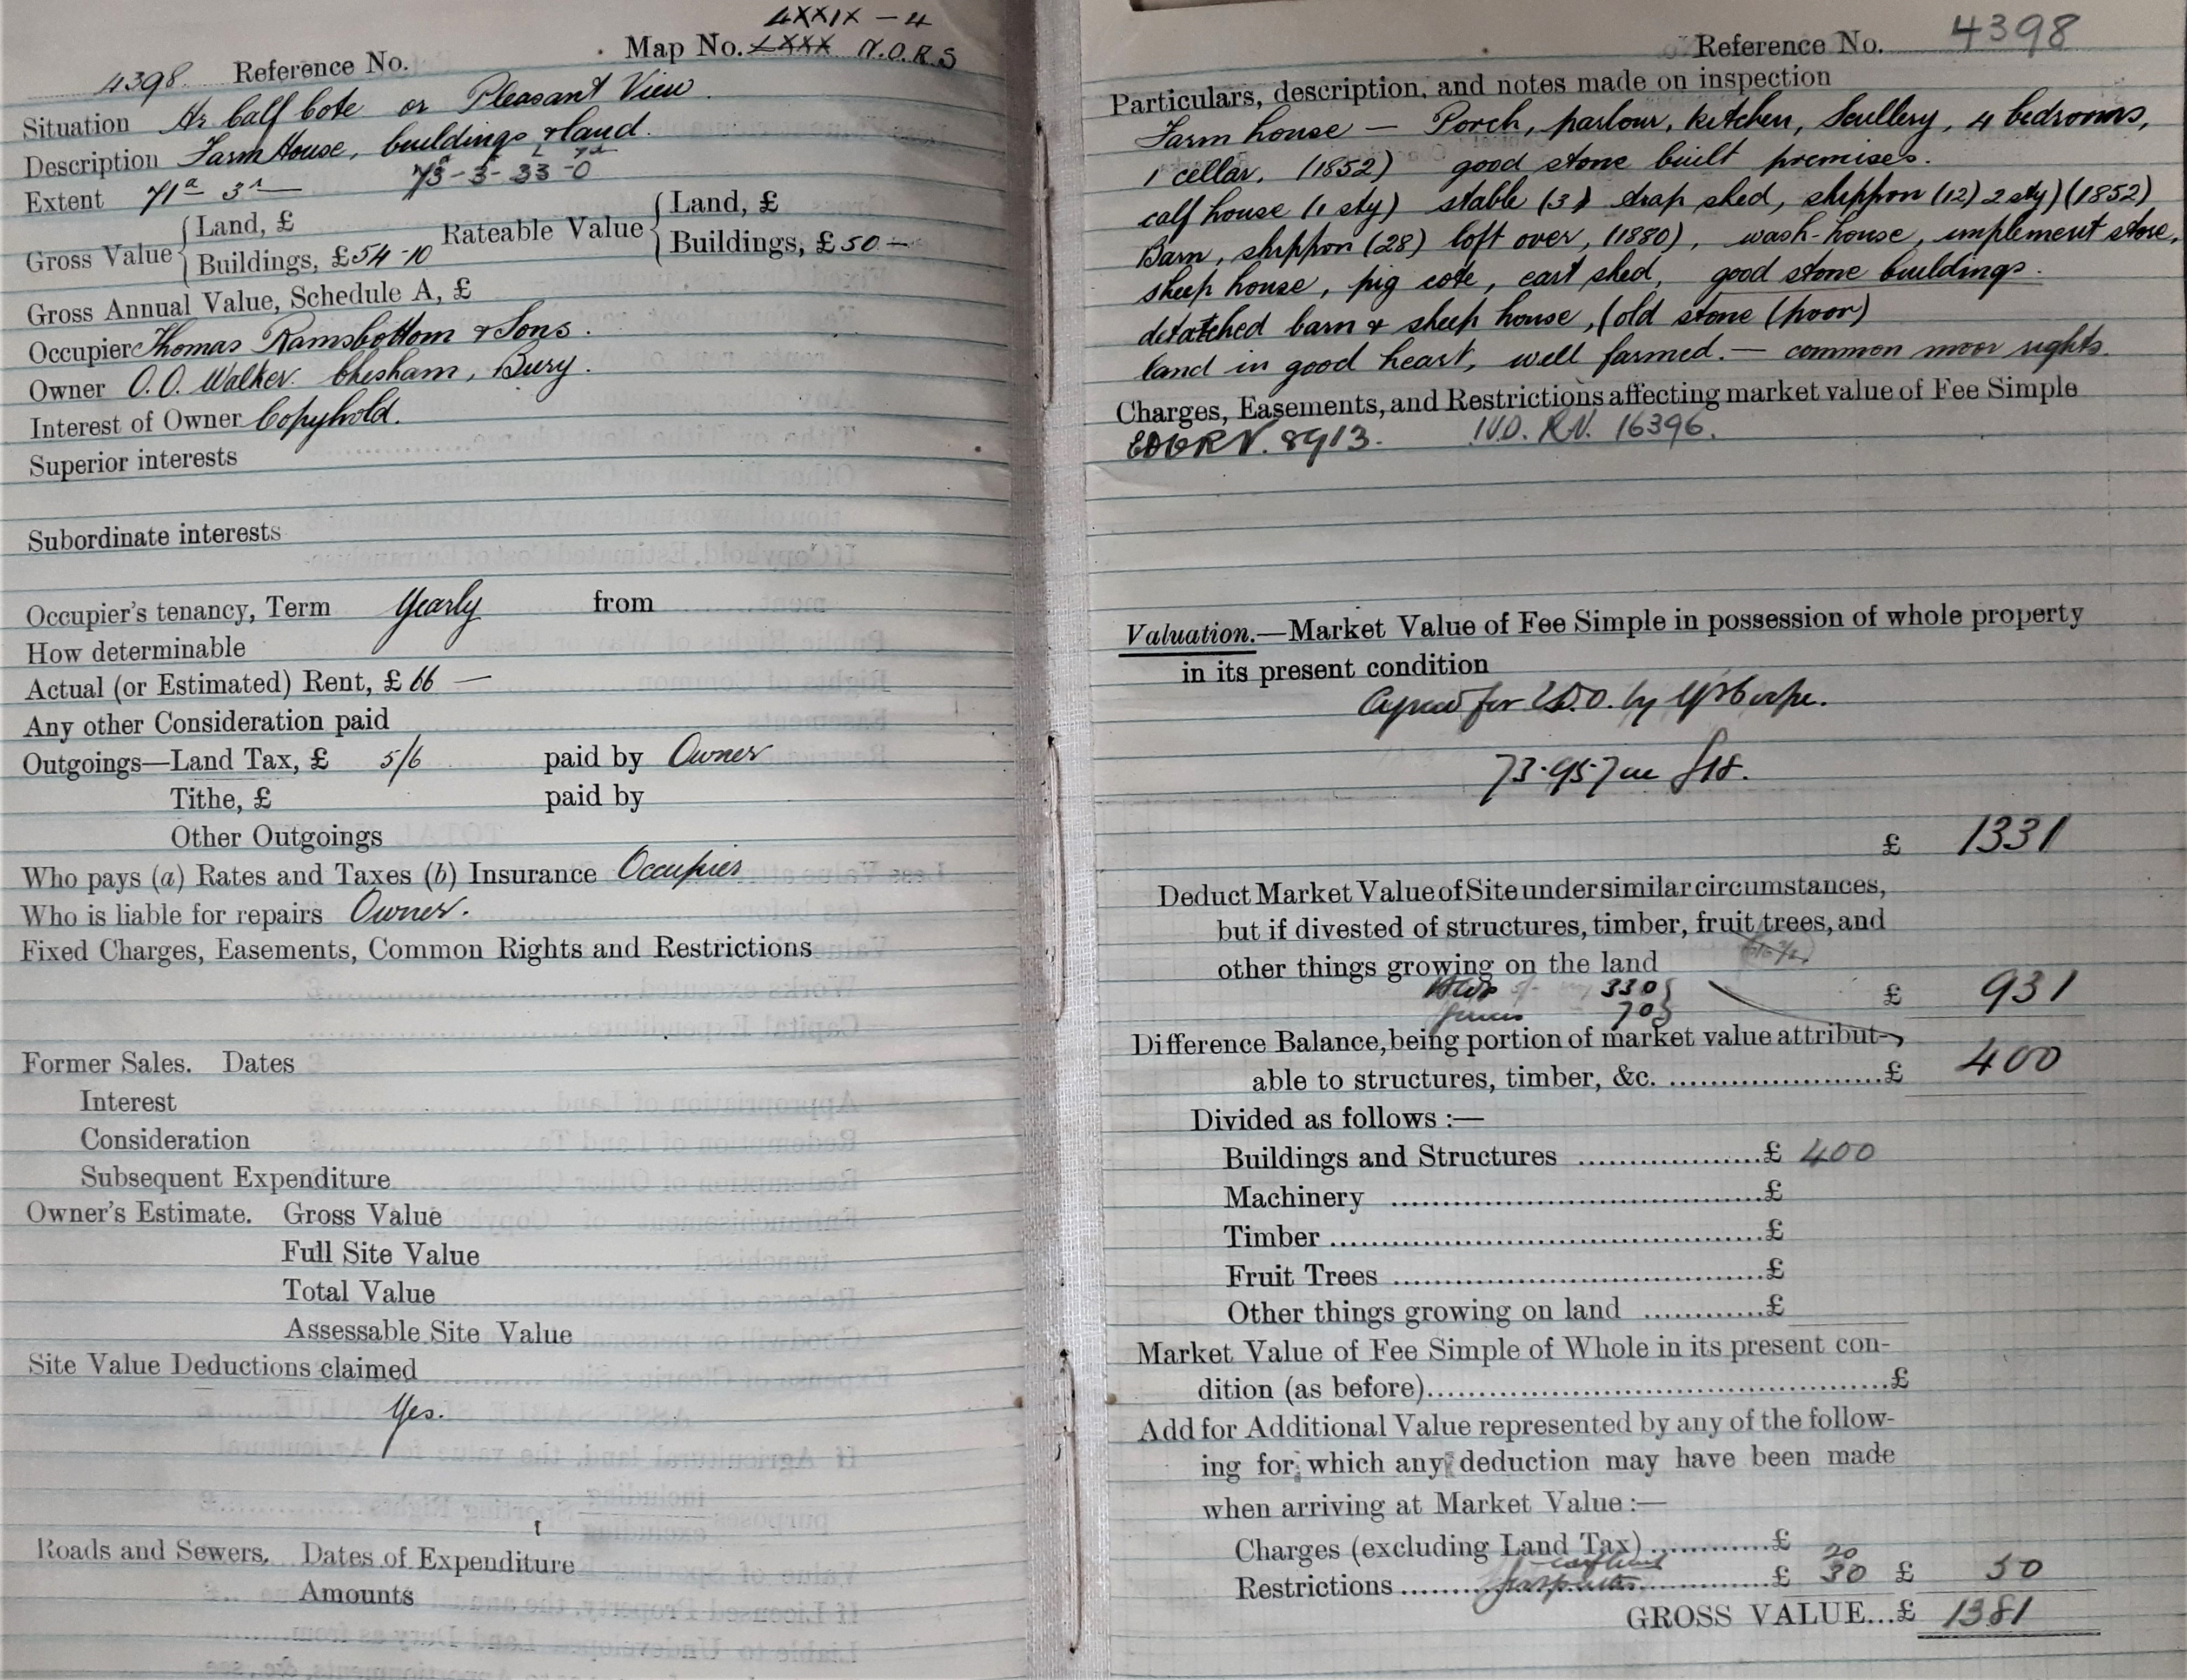 LXXIX - 4
4398 Reference No. Map No. LXXX N.O.R.S
Situation Hr Calf Cote or Pleasant View.
Description Farm House, buildings & land.
Extent 71a 3r 73 - 3 - 33 - 0
Gross Value { Land, £ Rateable Value { Land, £
Buildings, £ 54-10 Buildings, £ 50 -
Gross Annual Value, Schedule A, £
Occupier Thomas Ramsbottom & Sons.
Owner O.O. Walker. Chesham, Bury.
Interest of Owner Copyhold.
Superior interests
Subordinate interests
Occupier's tenancy, Term Yearly from
How determinable
Actual (or Estimated) Rent, £ 66 —
Any other Consideration paid
Outgoings—Land Tax, £ 5/6 paid by Owner
Tithe, £ paid by
Other Outgoings
Who pays (a) Rates and Taxes (b) Insurance Occupier
Who is liable for repairs Owner.
Fixed Charges, Easements, Common Rights and Restrictions
Former Sales. Dates
Interest
Consideration
Subsequent Expenditure
Owner's Estimate. Gross Value
Full Site Value
Total Value
Assessable Site Value
Site Value Deductions claimed
Yes.
Roads and Sewers. Dates of Expenditure
Amounts
Reference No. 4398
Particulars, description, and notes made on inspection
Farm house — Porch, parlour, kitchen, Scullery, 4 bedrooms,
1 cellar, (1852) good stone built premises.
calf house (1 sty) stable (3) trap shed, shippon (12) 2 sty) (1852)
Barn, shippon (28) loft over, (1880), wash-house, implement store,
sheep house, pig cote, cart shed, good stone buildings.
detatched barn & sheep house, (old stone (poor)
land in good heart, well farmed. — common moor rights.
Charges, Easements, and Restrictions affecting market value of Fee Simple
RN. 8913. RN. 16396.
Valuation.—Market Value of Fee Simple in possession of whole property
in its present condition
Agreed for by
73.957 ac £18.
£ 1331
Deduct Market Value of Site under similar circumstances,
but if divested of structures, timber, fruit trees, and
other things growing on the land
330 } £ 931
70 }
Difference Balance, being portion of market value attribut-
able to structures, timber, &c. ......................£ 400
Divided as follows :—
Buildings and Structures ..................£ 400
Machinery ....................................£
Timber ..........................................£
Fruit Trees ....................................£
Other things growing on land ...........£
Market Value of Fee Simple of Whole in its present con-
dition (as before)..............................................£
Add for Additional Value represented by any of the follow-
ing for which any deduction may have been made
when arriving at Market Value :—
Charges (excluding Land Tax)...........£ 20
Restrictions ....................................£ 30 £ 50
GROSS VALUE...£ 1381